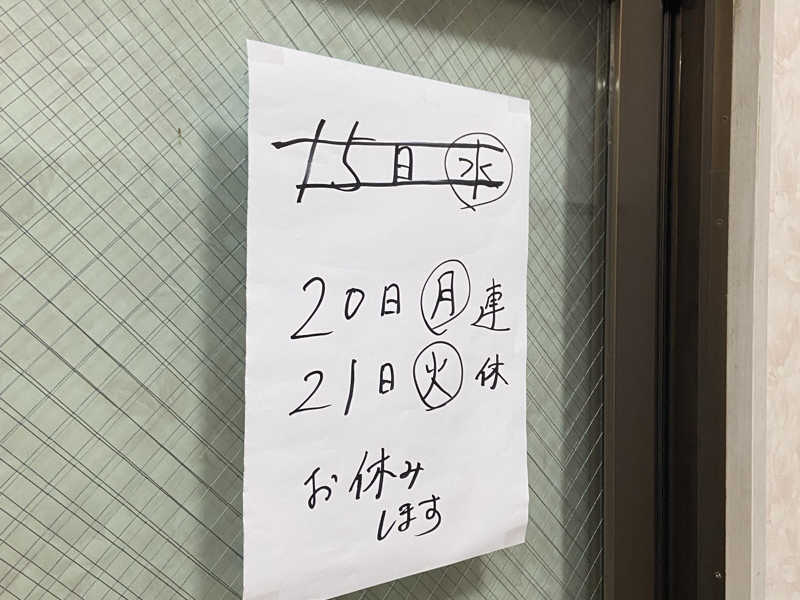 15日 水
20日 月 連
21日 火 休
お休み
します